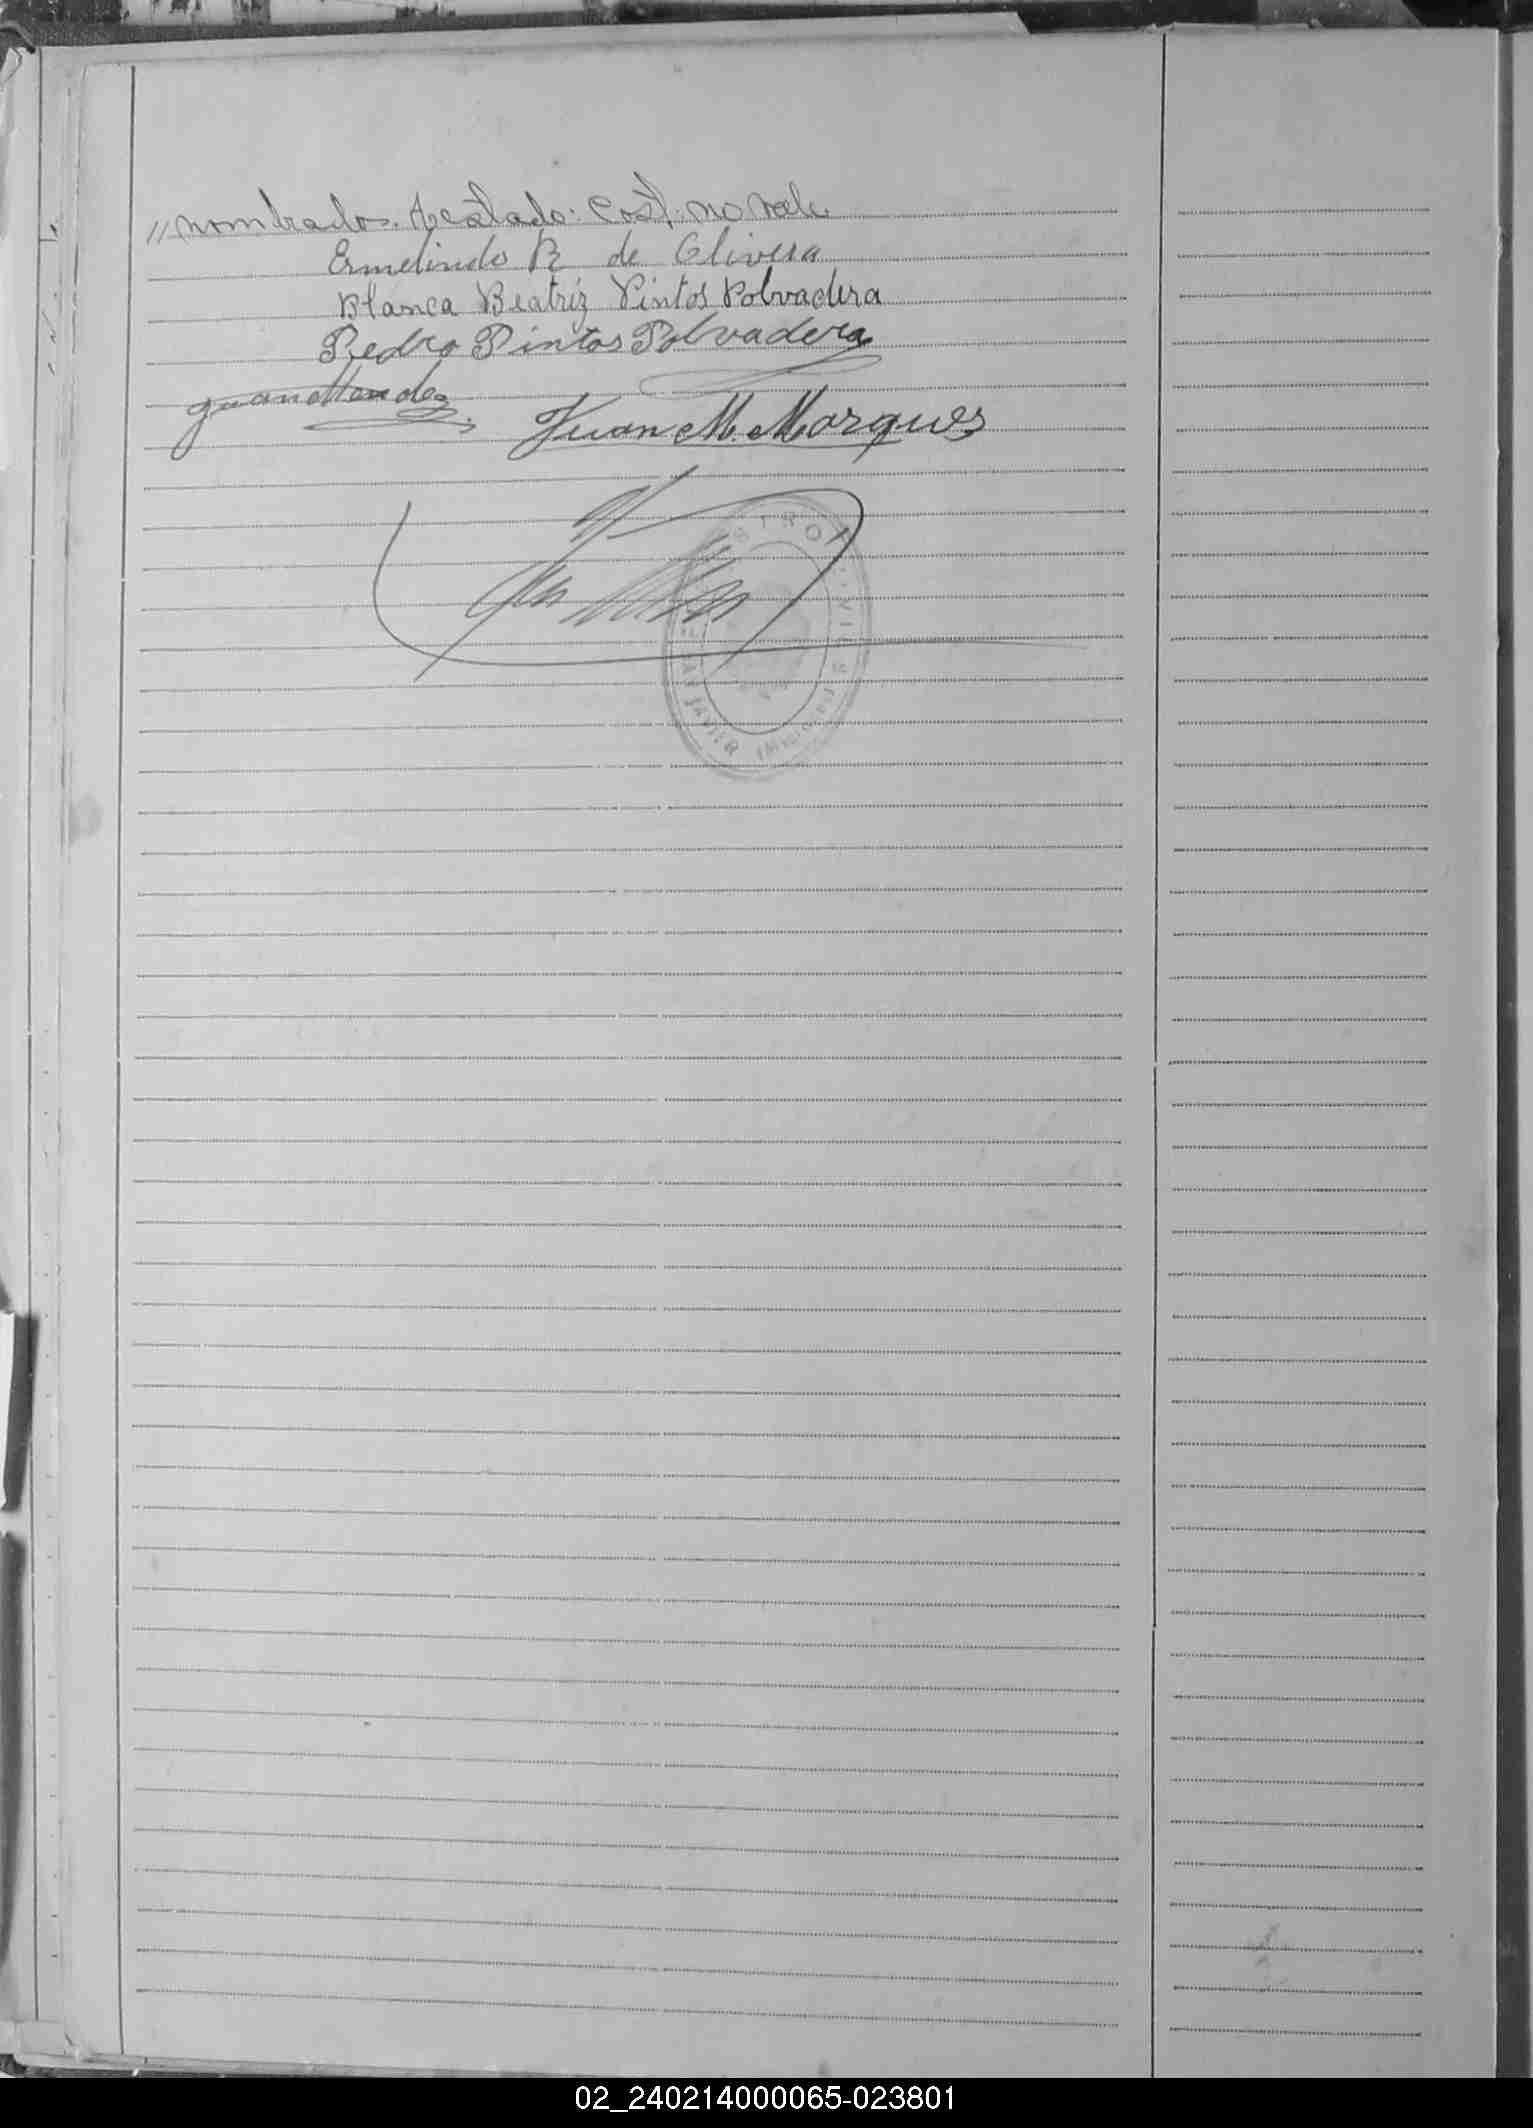 // nombrados. Testado: Cost. no vale
Ermelindo R de Olivera
Blanca Beatriz Pintos Polvadera
Pedro Pintos Polvadera
Juan Mendez
Juan M. Marques
SAN JAVIER
02_240214000065-023801